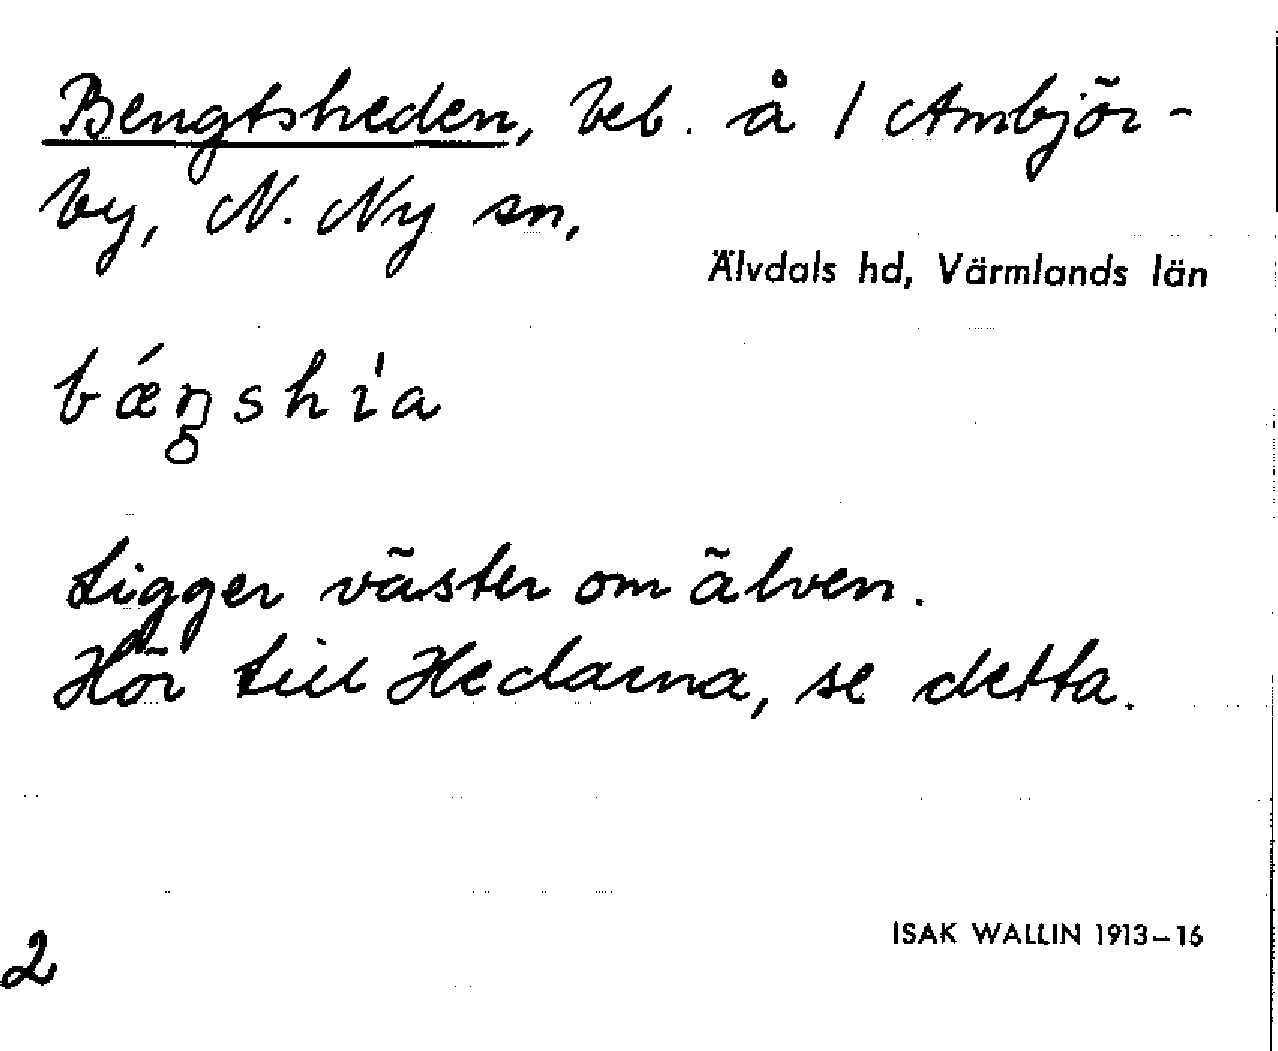 Bengtsheden, beb. å 1 Ambjör-
by, N. Ny sn,
Älvdals hd, Värmlands län
bǽŋshìa
Ligger väster om älven.
Hör till Hedarna, se detta.
ISAK WALLIN 1913–16
2